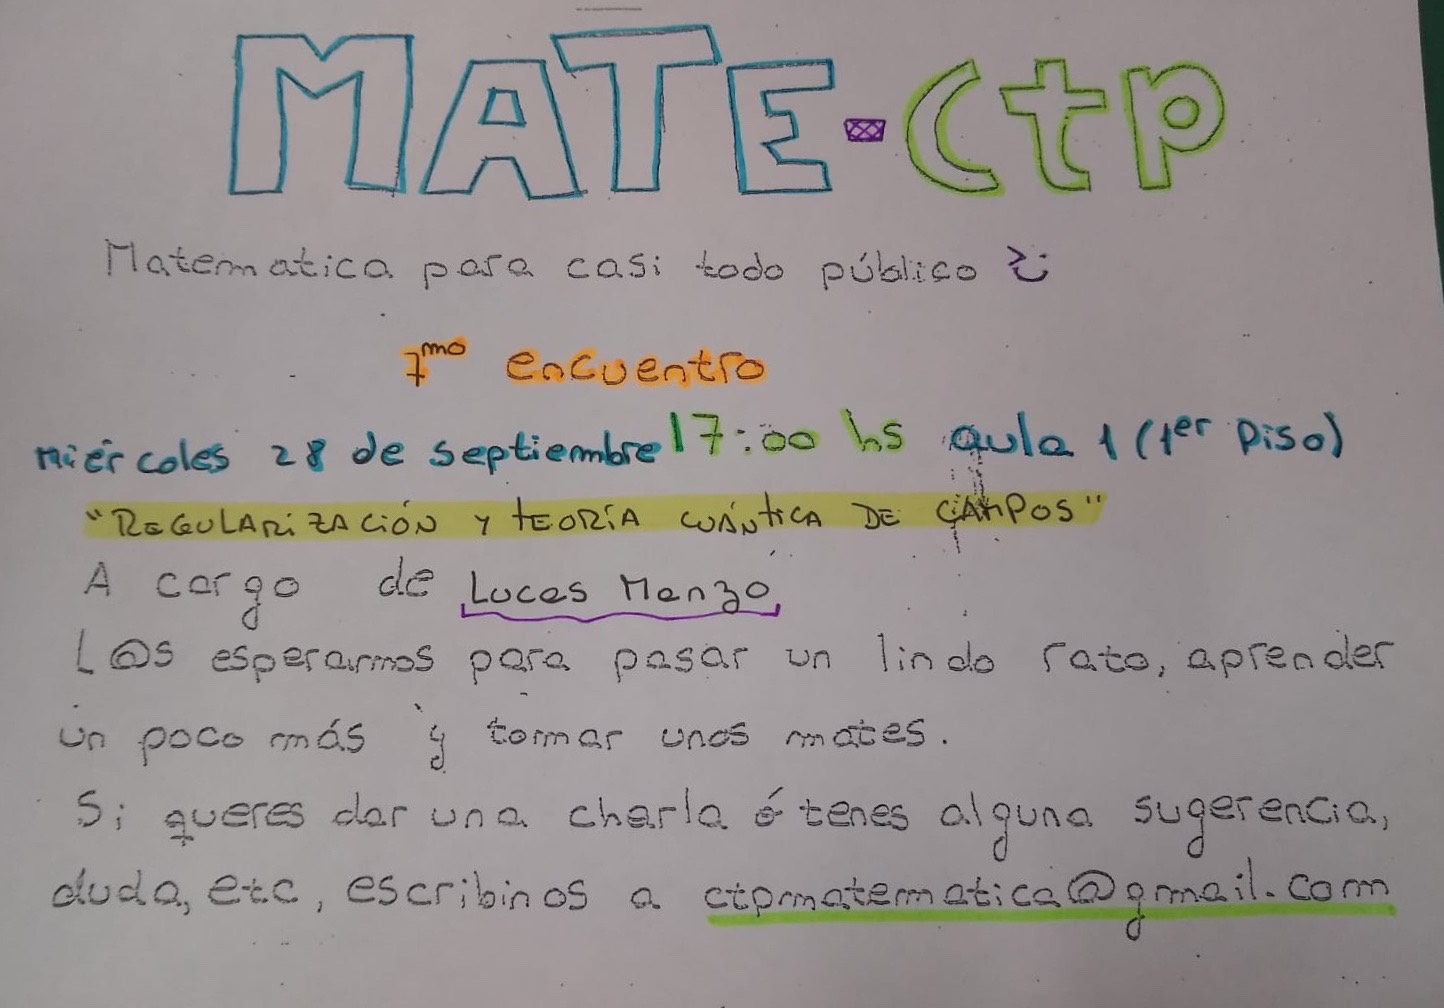 MATE-Ctp
Matematica para casi todo público
7mo encuentro
miércoles 28 de septiembre 17:00 hs aula 1 (1er piso)
"REGULARIZACIÓN Y TEORÍA CUÁNTICA DE CAMPOS"
A cargo de Lucas Manzo
L@s esperamos para pasar un lindo rato, aprender
un poco más y tomar unos mates.
Si queres dar una charla ó tenes alguna sugerencia,
duda, etc, escribinos a ctpmatematica@gmail.com